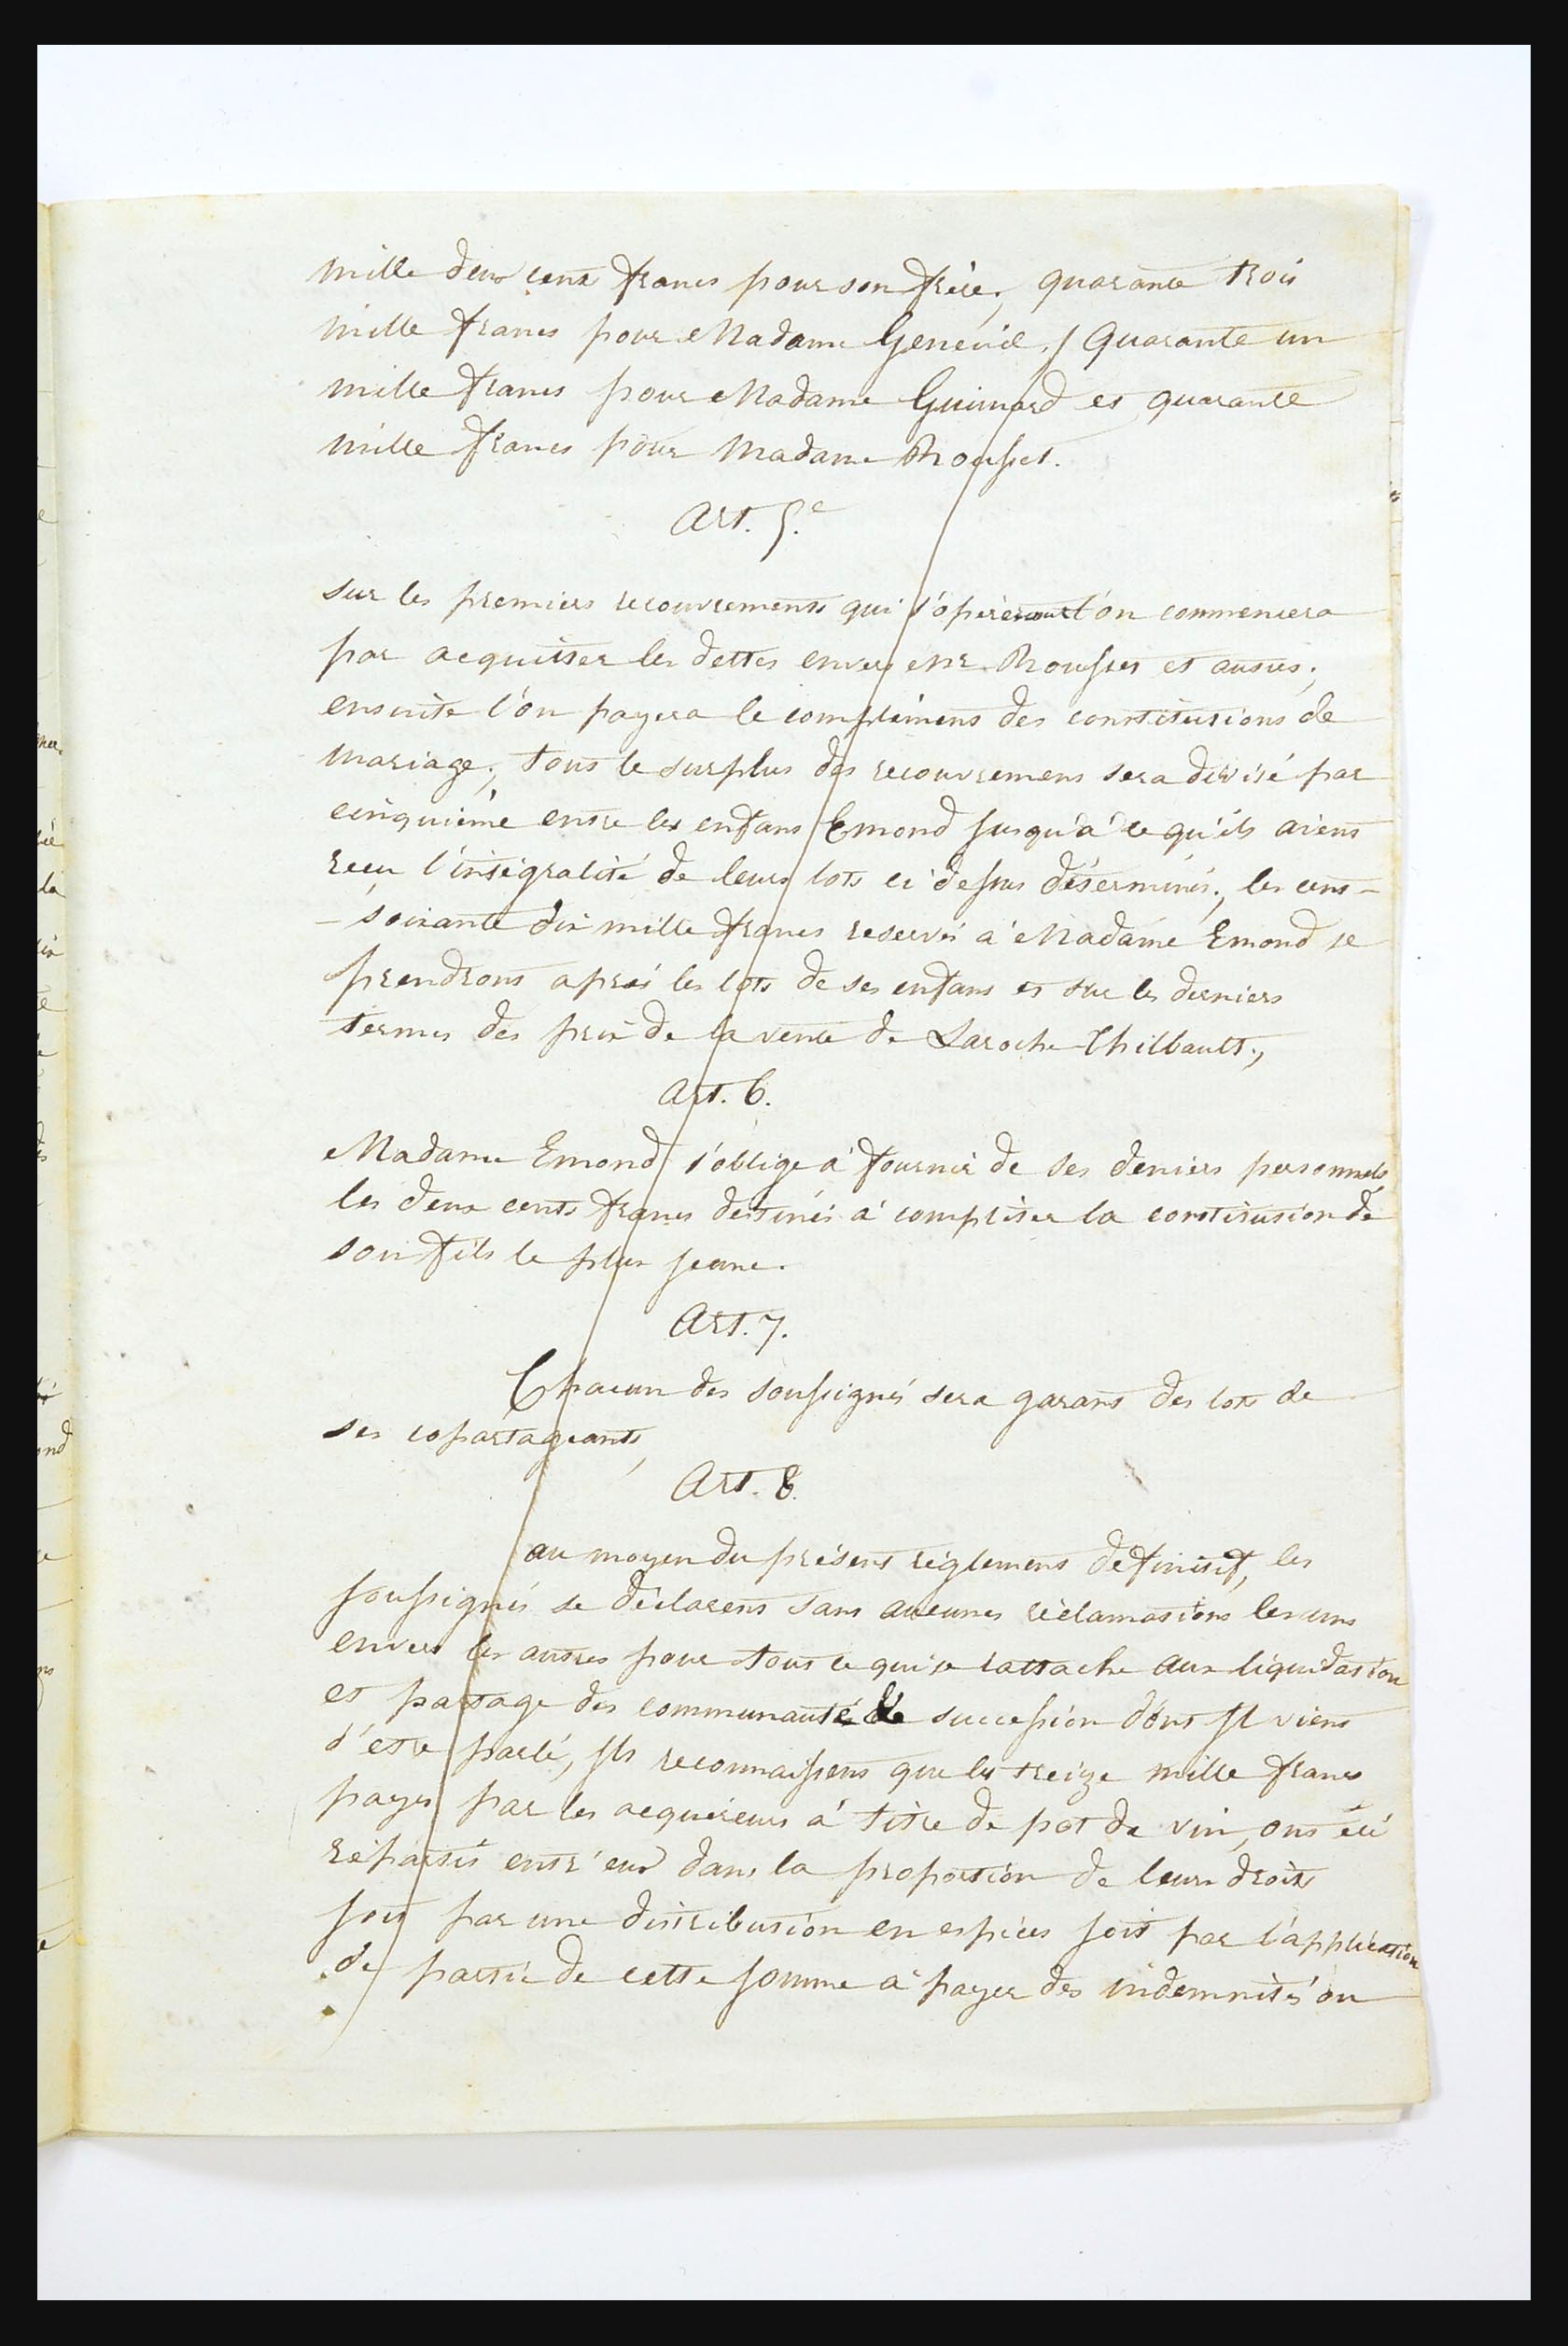 mille deux cents francs pour son frère, quarante trois
mille francs pour Madame Genevié, Quarante un
mille francs pour Madame Guimard et quarante
mille francs pour Madame Rousset.
Art. 5.e
sur les premiers recouvrements qui s'opèreront l'on commencera
par acquitter les dettes envers Mr. Rousset et autres;
ensuite l'on payera le complément des constitutions de
mariage; tout le surplus des recouvremens sera divisé par
cinquième entre les enfans Emond jusqu'à ce qu'ils aient
reçu l'intégralité de leurs lots ci dessus déterminés; les cent-
-soixante dix mille francs reservés à Madame Emond se
prendront après les lots de ses enfans et sur les derniers
termes des prix de la vente de Laroche Thilbault;
Art. 6.
Madame Emond s'oblige à fournir de ses deniers personnels
les deux cents francs destinés à compléter la constitution de
son fils le plus jeune.
Art. 7.
Chacun des soussignés sera garant des lots de
ses copartageants,
Art. 8.
au moyen du présent réglement définitif, les
soussignés se déclarent sans aucunes réclamations les uns
envers les autres pour tout ce qui se rattache aux liquidation
et partage des communauté & succession dont il vient
d'être parlé, ils reconnaissent que les treize mille francs
payés par les acquéreurs à titre de pot de vin, ont été
répartis entr'eux dans la proportion de leurs droits
soit par une distribution en espèces soit par l'application
de partie de cette somme à payer des indemnités ou